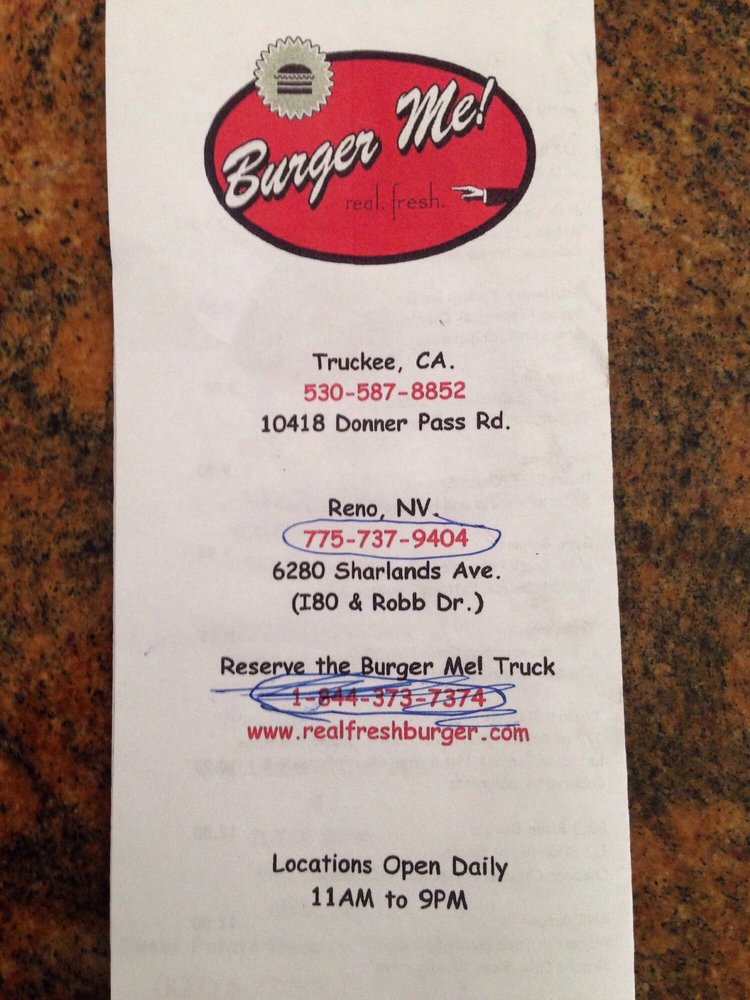 Burger Me!
real. fresh.
Truckee, CA.
530-587-8852
10418 Donner Pass Rd.
Reno, NV.
775-737-9404
6280 Sharlands Ave.
(I80 & Robb Dr.)
Reserve the Burger Me! Truck
1-844-373-7374
www.realfreshburger.com
Locations Open Daily
11AM to 9PM